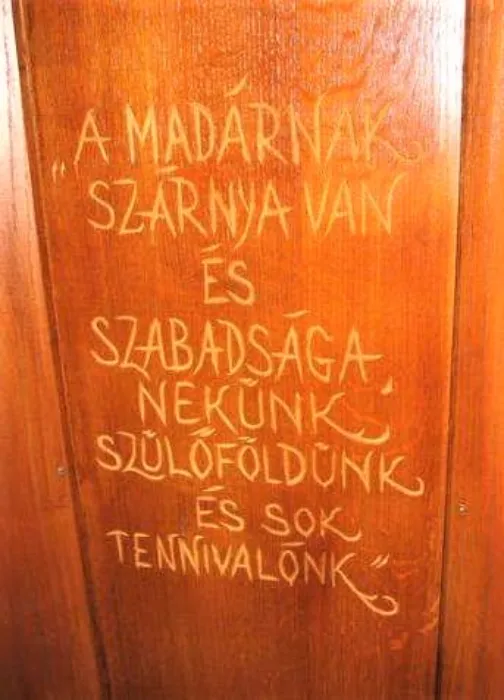 „A MADÁRNAK
SZÁRNYA VAN
ÉS
SZABADSÁGA,
NEKÜNK
SZÜLŐFÖLDÜNK
ÉS SOK
TENNIVALÓNK”